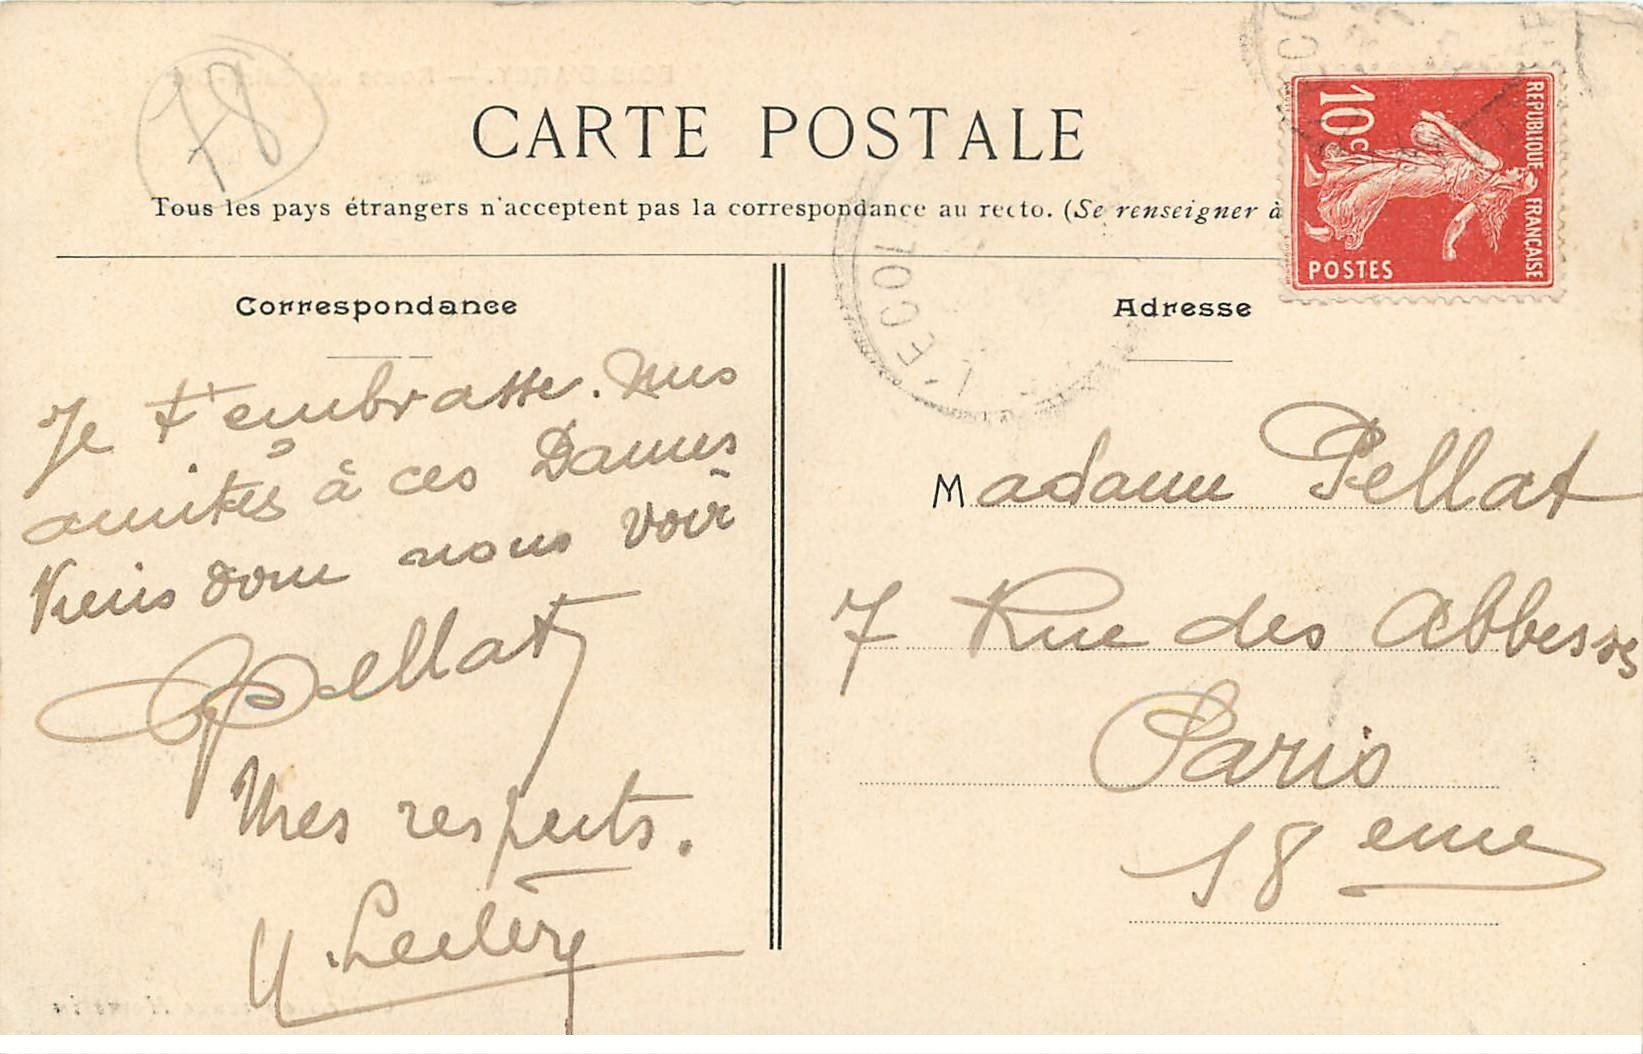 78
CARTE POSTALE
Tous les pays étrangers n'acceptent pas la correspondance au recto. (Se renseigner à
REPUBLIQUE FRANÇAISE
10c
POSTES
L'ECOL
Correspondance
Je t'embrasse. Mes
amités à ces Dames
Viens donc nous voir
Pellat
Mes respects.
Leclère
Adresse
Madame Pellat
7 Rue des Abbesses
Paris
18eme